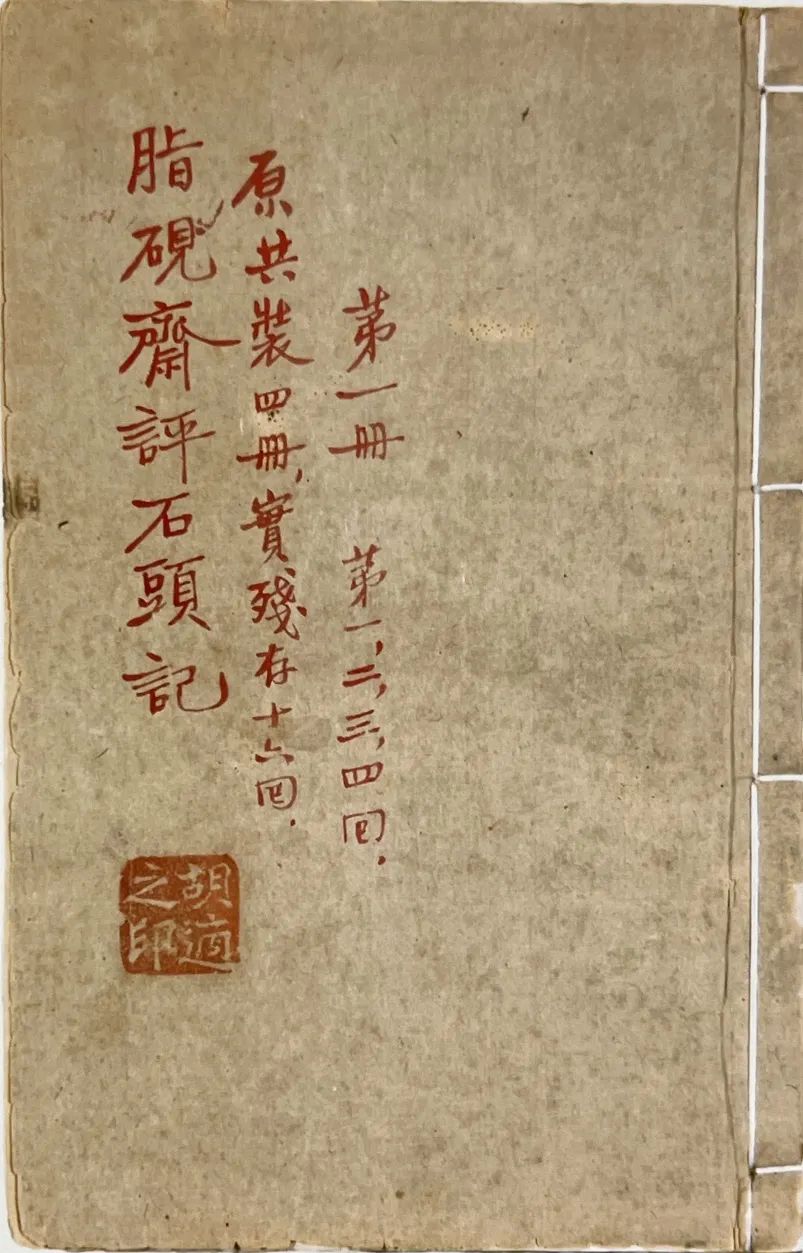 脂硯齋評石頭記
原共裝四冊,實殘存十六回.
第一冊 第一,二,三,四回.
胡適
之印